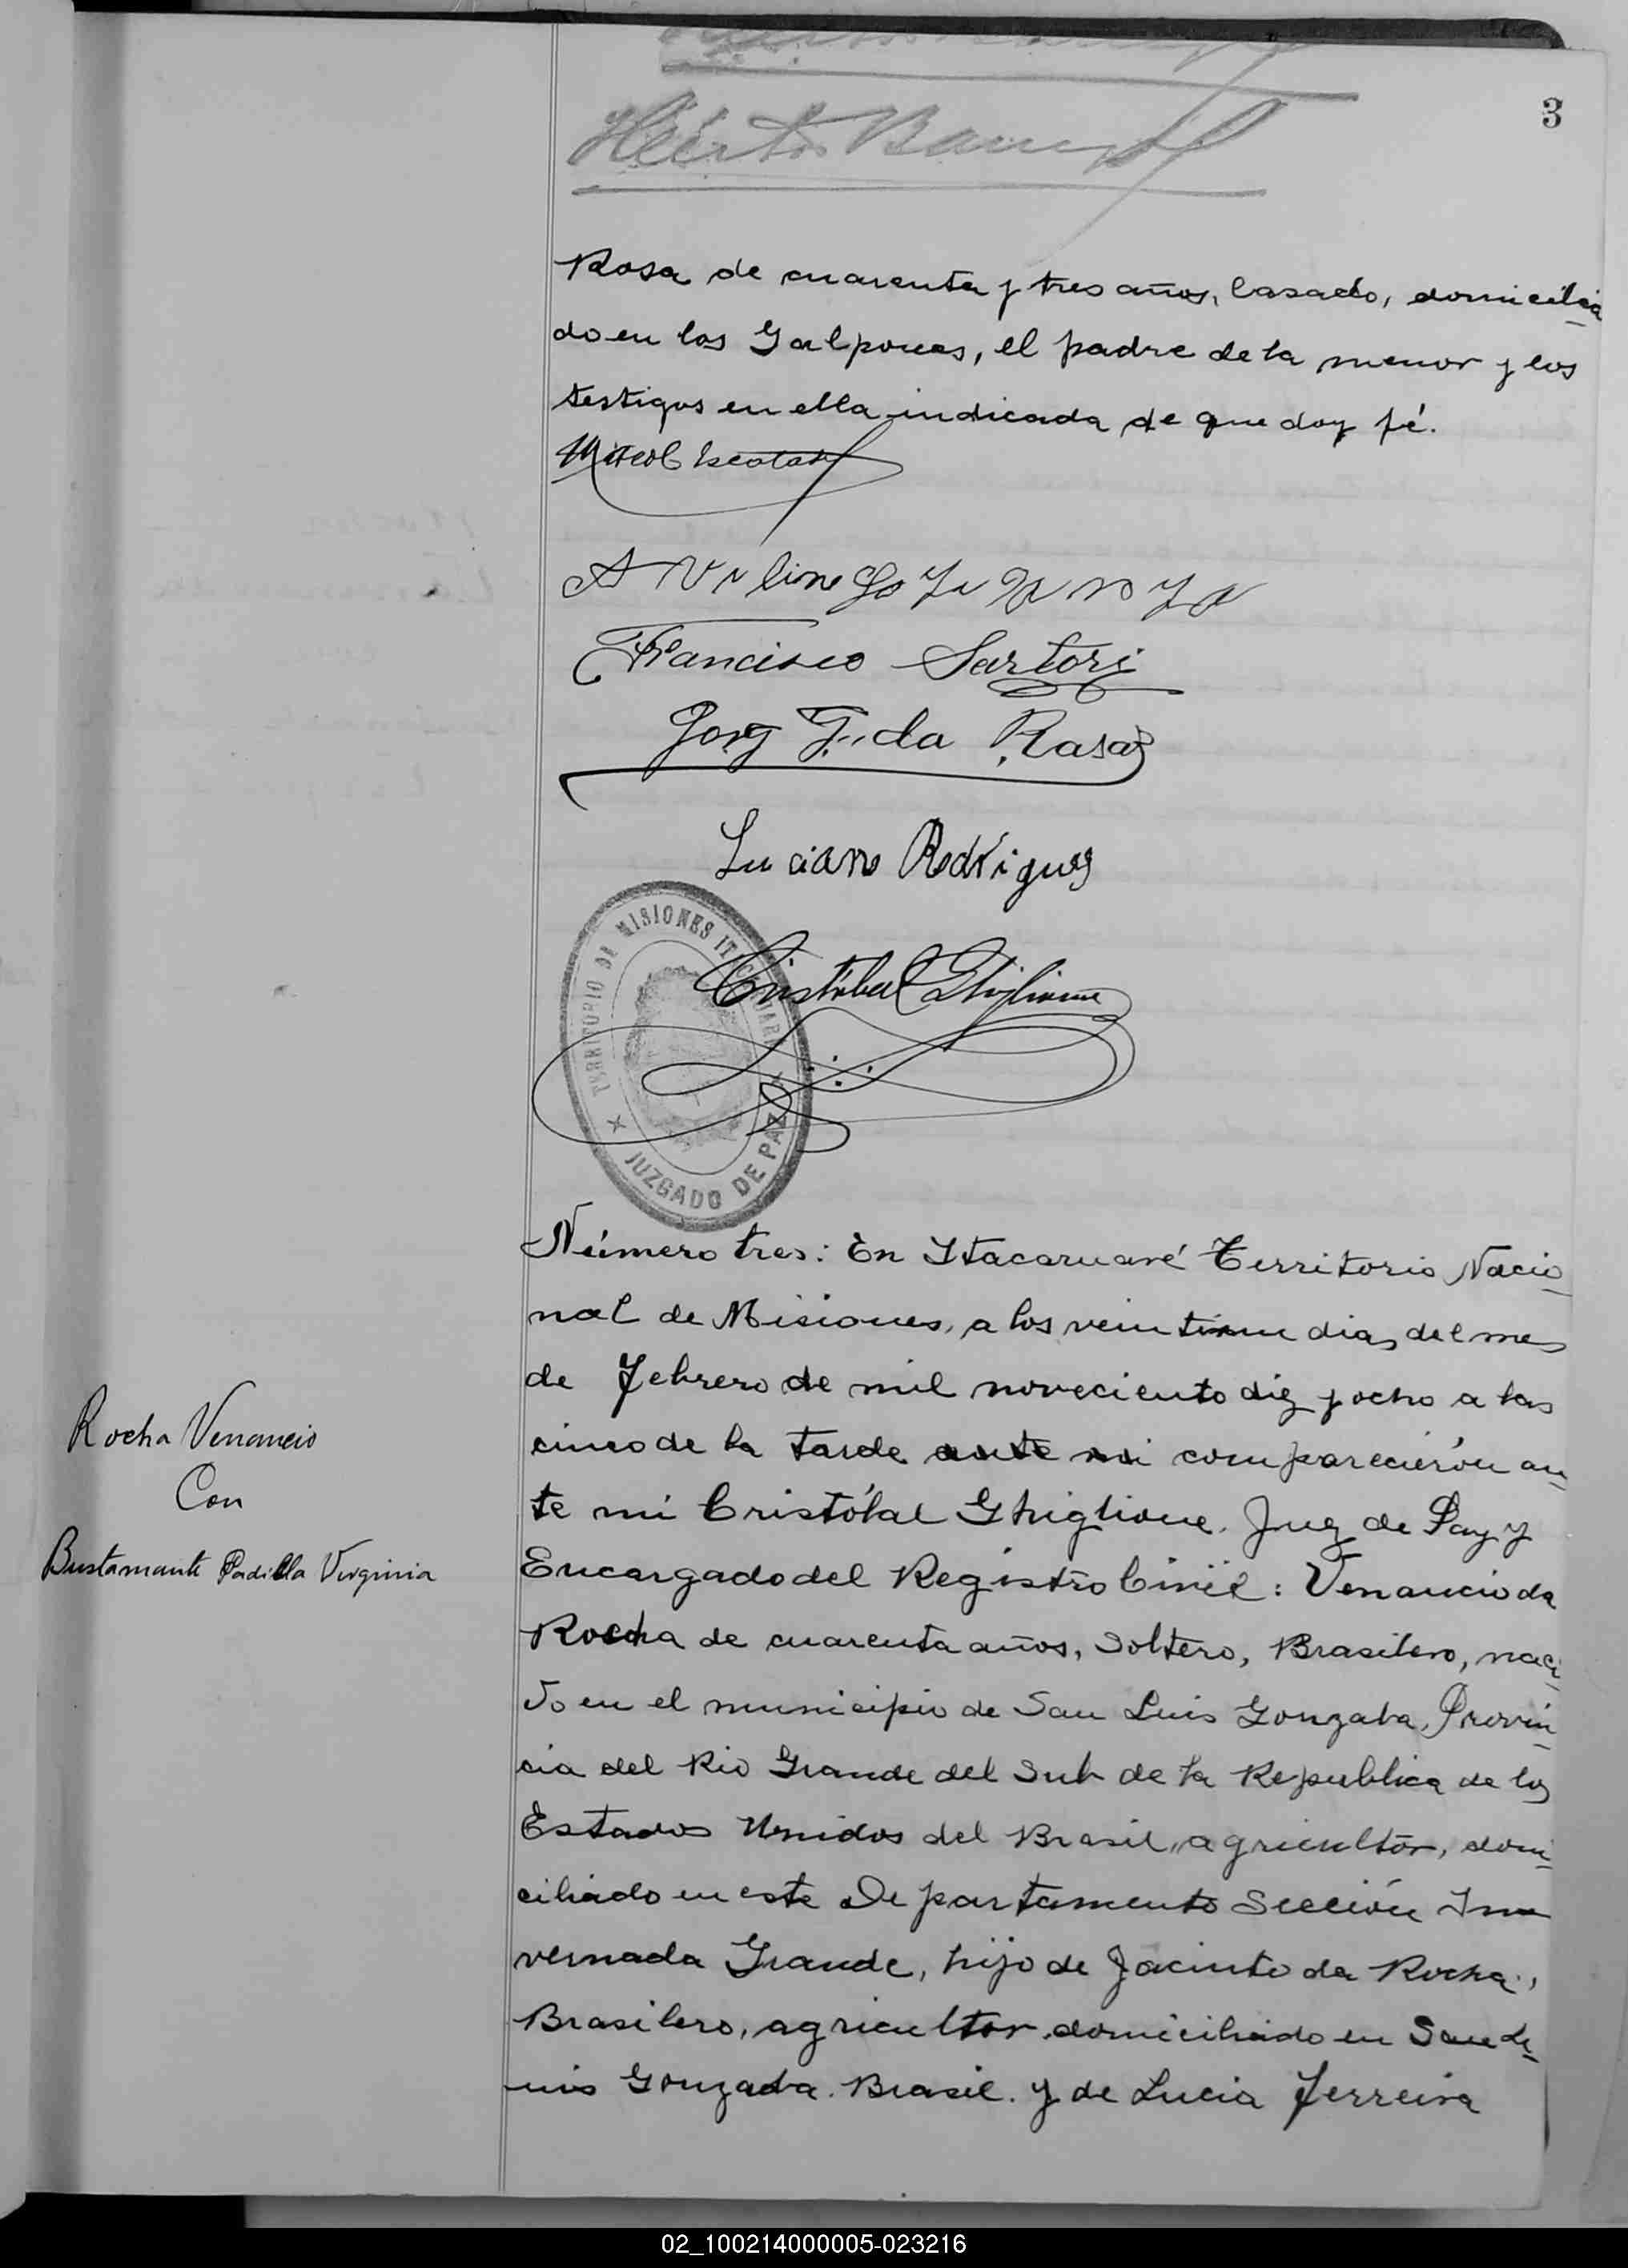 3
Rosa de cuarenta y tres años, Casado, domicilia
do en los Galpones, el padre de la menor y los
testigos en ella indicada de que doy fé.
Francisco Sartori
Jorg F. da Rosa
Luciano Rodrigues
Cristóbal Ghiglione
TERRITORIO DE MISIONES ITACARUARE
JUZGADO DE PAZ
Número tres: En Itacaruaré Territorio Nacio
nal de Misiones, a los dias del mes
de Febrero de mil noveciento diez y ocho a las
cinco de la tarde ante mi comparecierón an
te mi Cristóbal Ghiglione. Juez de Paz y
Encargado del Registro Civil: Venancio da
Rocha de cuarenta años, Soltero, Brasilero, naci
do en el municipio de San Luis Gonzaba, Provin
cia del Rio Grande del Sub de la Republica de los
Estados Unidos del Brasil, agricultor, domi
ciliado en este Departamento Sección In
vernada Grande, hijo de Jacinto da Rocha,
Brasilero, agricultor domiciliado en San L
uis Gonzaba. Brasil. y de Lucia Ferreira
Rocha Venancio
Con
Bustamante Padilla Virginia
02_100214000005-023216